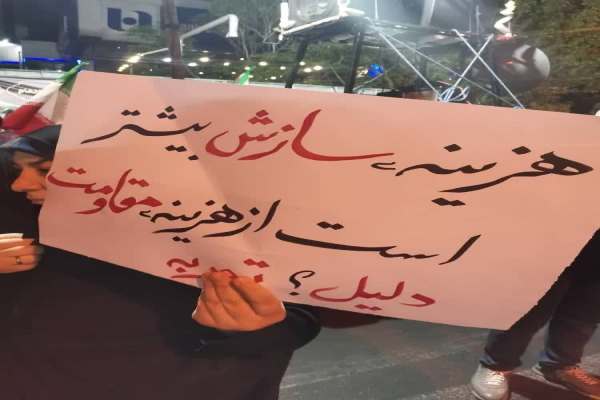 هزینه‌ء سازش بیشتر
است از هزینه‌ء مقاومت
دلیل؟ تجربه